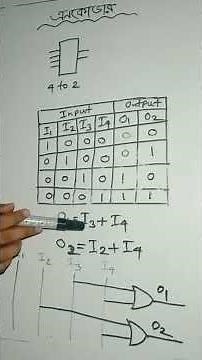 এনকোডার
4 to 2
Input Output
I1 I2 I3 I4 O1 O2
1 0 0 0 0 0
0 1 0 0 0 1
0 0 1 0 1 0
0 0 0 1 1 1
= I3 + I4
O2 = I2 + I4
I2 I3 I4
O1
O2